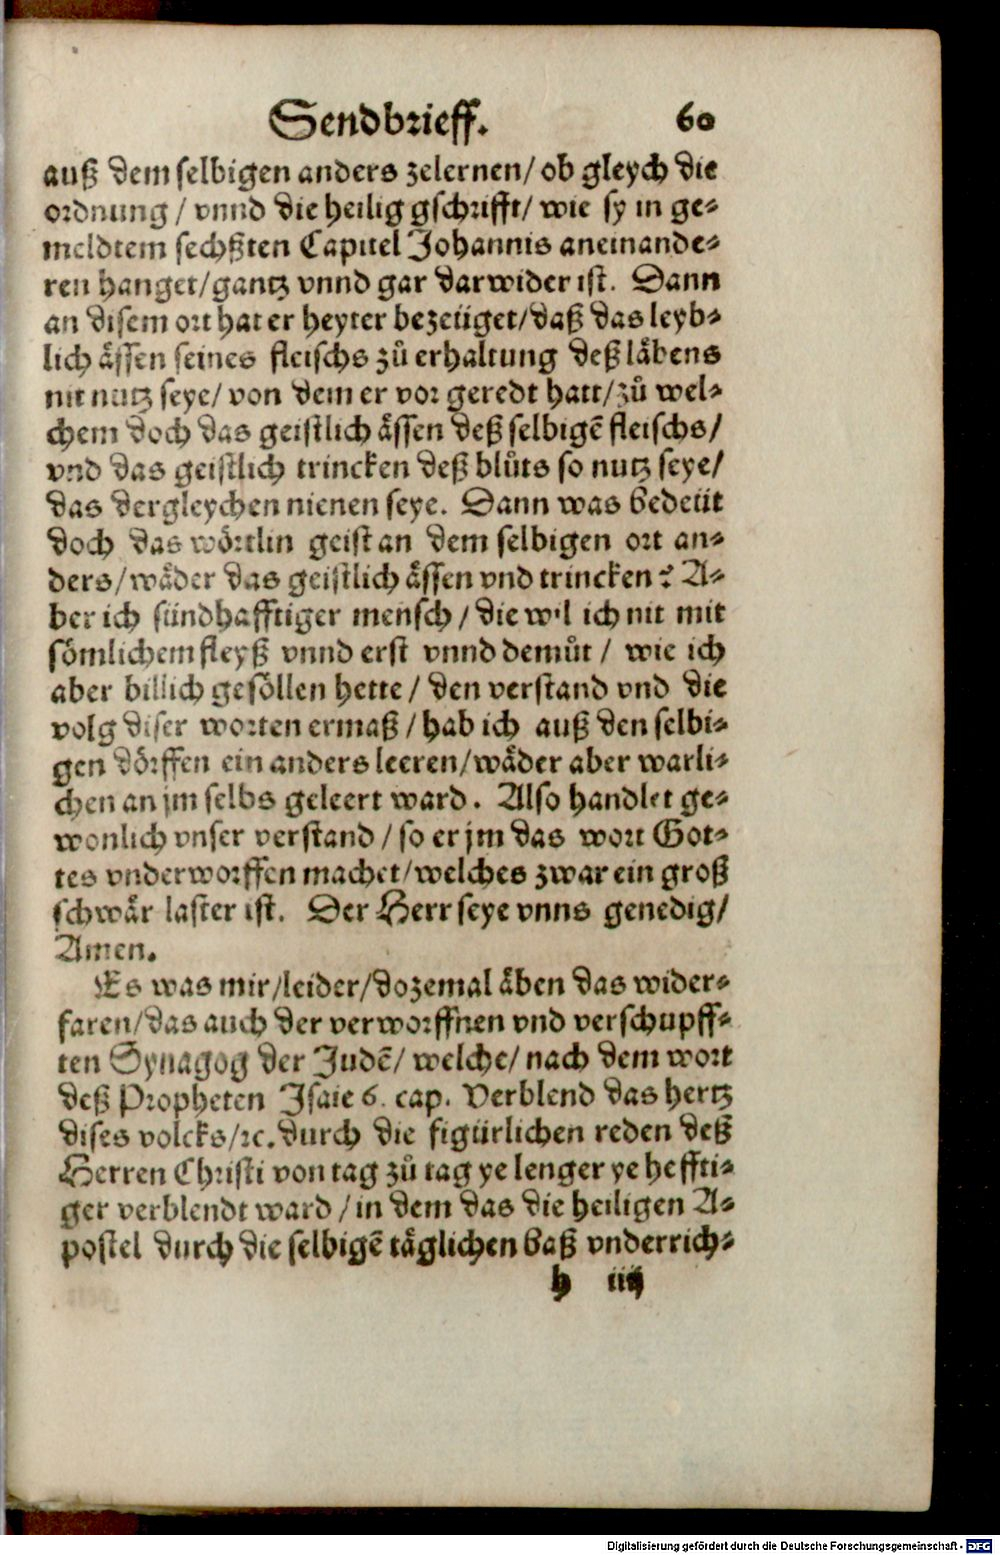 Sendbrieff. 60
auß dem selbigen anders zelernen/ ob gleych die
ordnung / vnnd die heilig gschrifft/ wie sy in ge⸗
meldtem sechßten Capitel Johannis aneinande⸗
ren hanget/gantz vnnd gar darwider ist. Dann
an disem ort hat er heyter bezeüget/daß das leyb⸗
lich ässen seines fleischs zů erhaltung deß läbens
nit nutz seye/ von dem er vor geredt hatt/zů wel⸗
chem doch das geistlich ässen deß selbigē fleischs/
vnd das geistlich trincken deß blůts so nutz seye/
das dergleychen nienen seye. Dann was bedeüt
doch das wörtlin geist an dem selbigen ort an⸗
ders/wäder das geistlich ässen vnd trincken? A⸗
ber ich sündhafftiger mensch / die wil ich nit mit
sömlichem fleyß vnnd erst vnnd demůt / wie ich
aber billich gesöllen hette / den verstand vnd die
volg diser worten ermaß / hab ich auß den selbi⸗
gen dörffen ein anders leeren/wäder aber warli⸗
chen an jm selbs geleert ward. Also handlet ge⸗
wonlich vnser verstand / so er jm das wort Got⸗
tes vnderworffen machet/welches zwar ein groß
schwär laster ist. Der Herr seye vnns genedig/
Amen.
Es was mir/leider/dozemal äben das wider⸗
faren/das auch der verworffnen vnd verschupff⸗
ten Synagog der Judē/ welche/ nach dem wort
deß Propheten Isaie 6. cap. Verblend das hertz
dises volcks/ꝛc. durch die figürlichen reden deß
Herren Christi von tag zů tag ye lenger ye heffti⸗
ger verblendt ward / in dem das die heiligen A⸗
postel durch die selbigē täglichen baß vnderrich⸗
h iiij
Digitalisierung gefördert durch die Deutsche Forschungsgemeinschaft - DFG